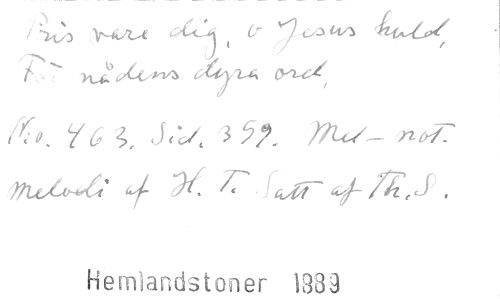 Pris vare dig, o Jesus huld,
För nådens dyra ord,
No. 463. Sid. 359. Mel-not.
melodi af H. T. Satt af Th. S.
Hemlandstoner 1889